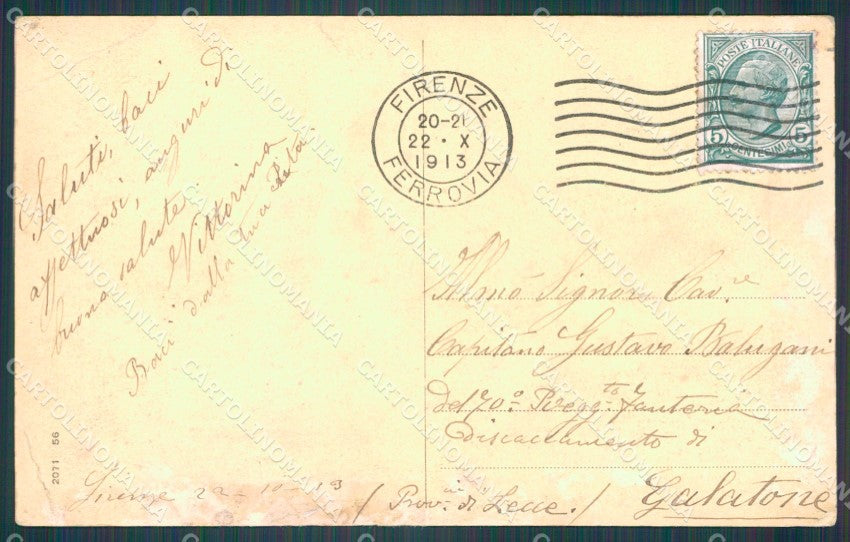 Saluti, baci
affettuosi, auguri di
buona salute.
Vittorina
Baci dalla tua
Firenze 22-10-13
2071 56
FIRENZE
20-21
22 · X
1913
FERROVIA
POSTE ITALIANE
5 5
CENTESIMI
Illmo Signor Cav.re
Capitano Gustavo Baluzani
del 70º Regg.to Fanteria
Discaccamento di
Galatone
/ Prov.cia di Lecce. /
CARTOLINOMANIA